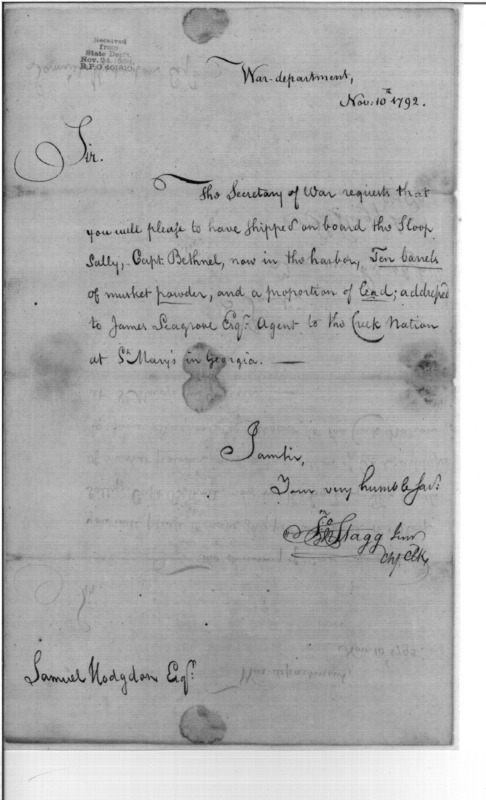 Received
from
State Dept.
Nov. 24, 1894
R.P.O. 401810
War-department,
Nov: 10th 1792.
Sir.
The Secretary of War requests that
you will please to have shipped on board the Sloop
Sally,- Capt. Bethnel, now in the harbor, Ten barrels
of musket powder, and a proportion of lead; addressed
to James Seagrove Esqr. Agent to the Creek Nation
at St. Mary's in Georgia. —
I am sir,
Your very humble Servt:
Jno Stagg Junr
Chf. Clk.
Samuel Hodgdon Esqr.